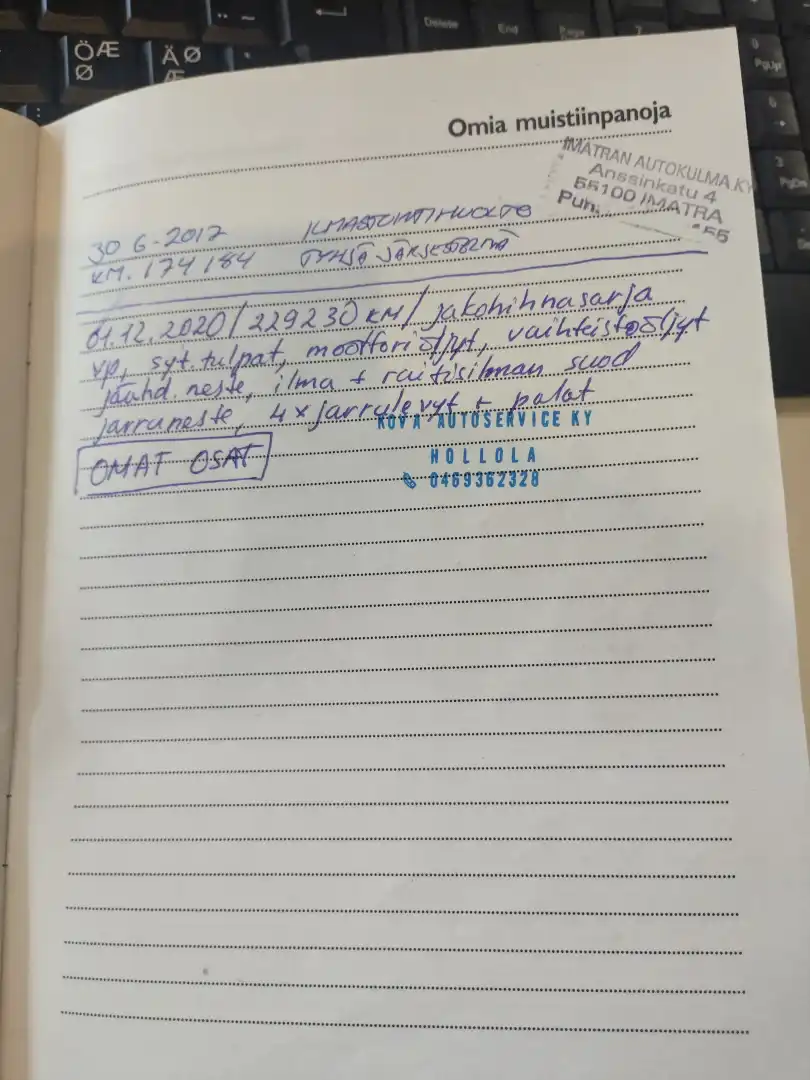 Omia muistiinpanoja
IMATRAN AUTOKULMA KY
Anssinkatu 4
55100 IMATRA
Puh.
30 6-2017 ILMASTOINTIHUOLTO
KM. 174184 TYHJÄ JÄRJESTELMÄ
01.12.2020/229230 KM/ jakohihnasarja
vp, syt.tulpat, moottoriöljyt, vaihteistoöljyt
jäähd.neste, ilma + raitisilman suod
jarruneste, 4x jarrulevyt + palat
KOVA AUTOSERVICE KY
OMAT OSAT
HOLLOLA
0469362328
Delete
End
ÖÆ
Ø
ÄØ
Æ
9
PgUp
6
3